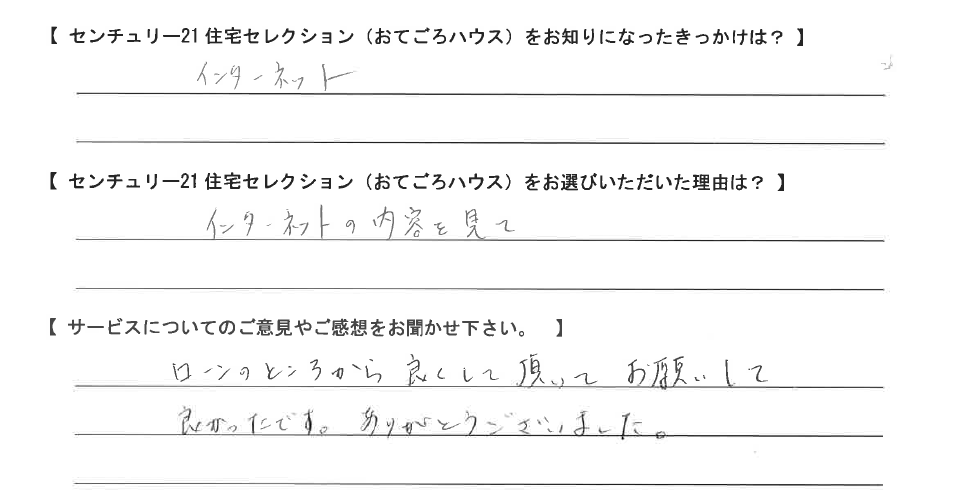 【 センチュリー21住宅セレクション（おてごろハウス）をお知りになったきっかけは？ 】
インターネット
【 センチュリー21住宅セレクション（おてごろハウス）をお選びいただいた理由は？ 】
インターネットの内容を見て
【 サービスについてのご意見やご感想をお聞かせ下さい。 】
ローンのところから良くして頂いてお願いして
良かったです。ありがとうございました。